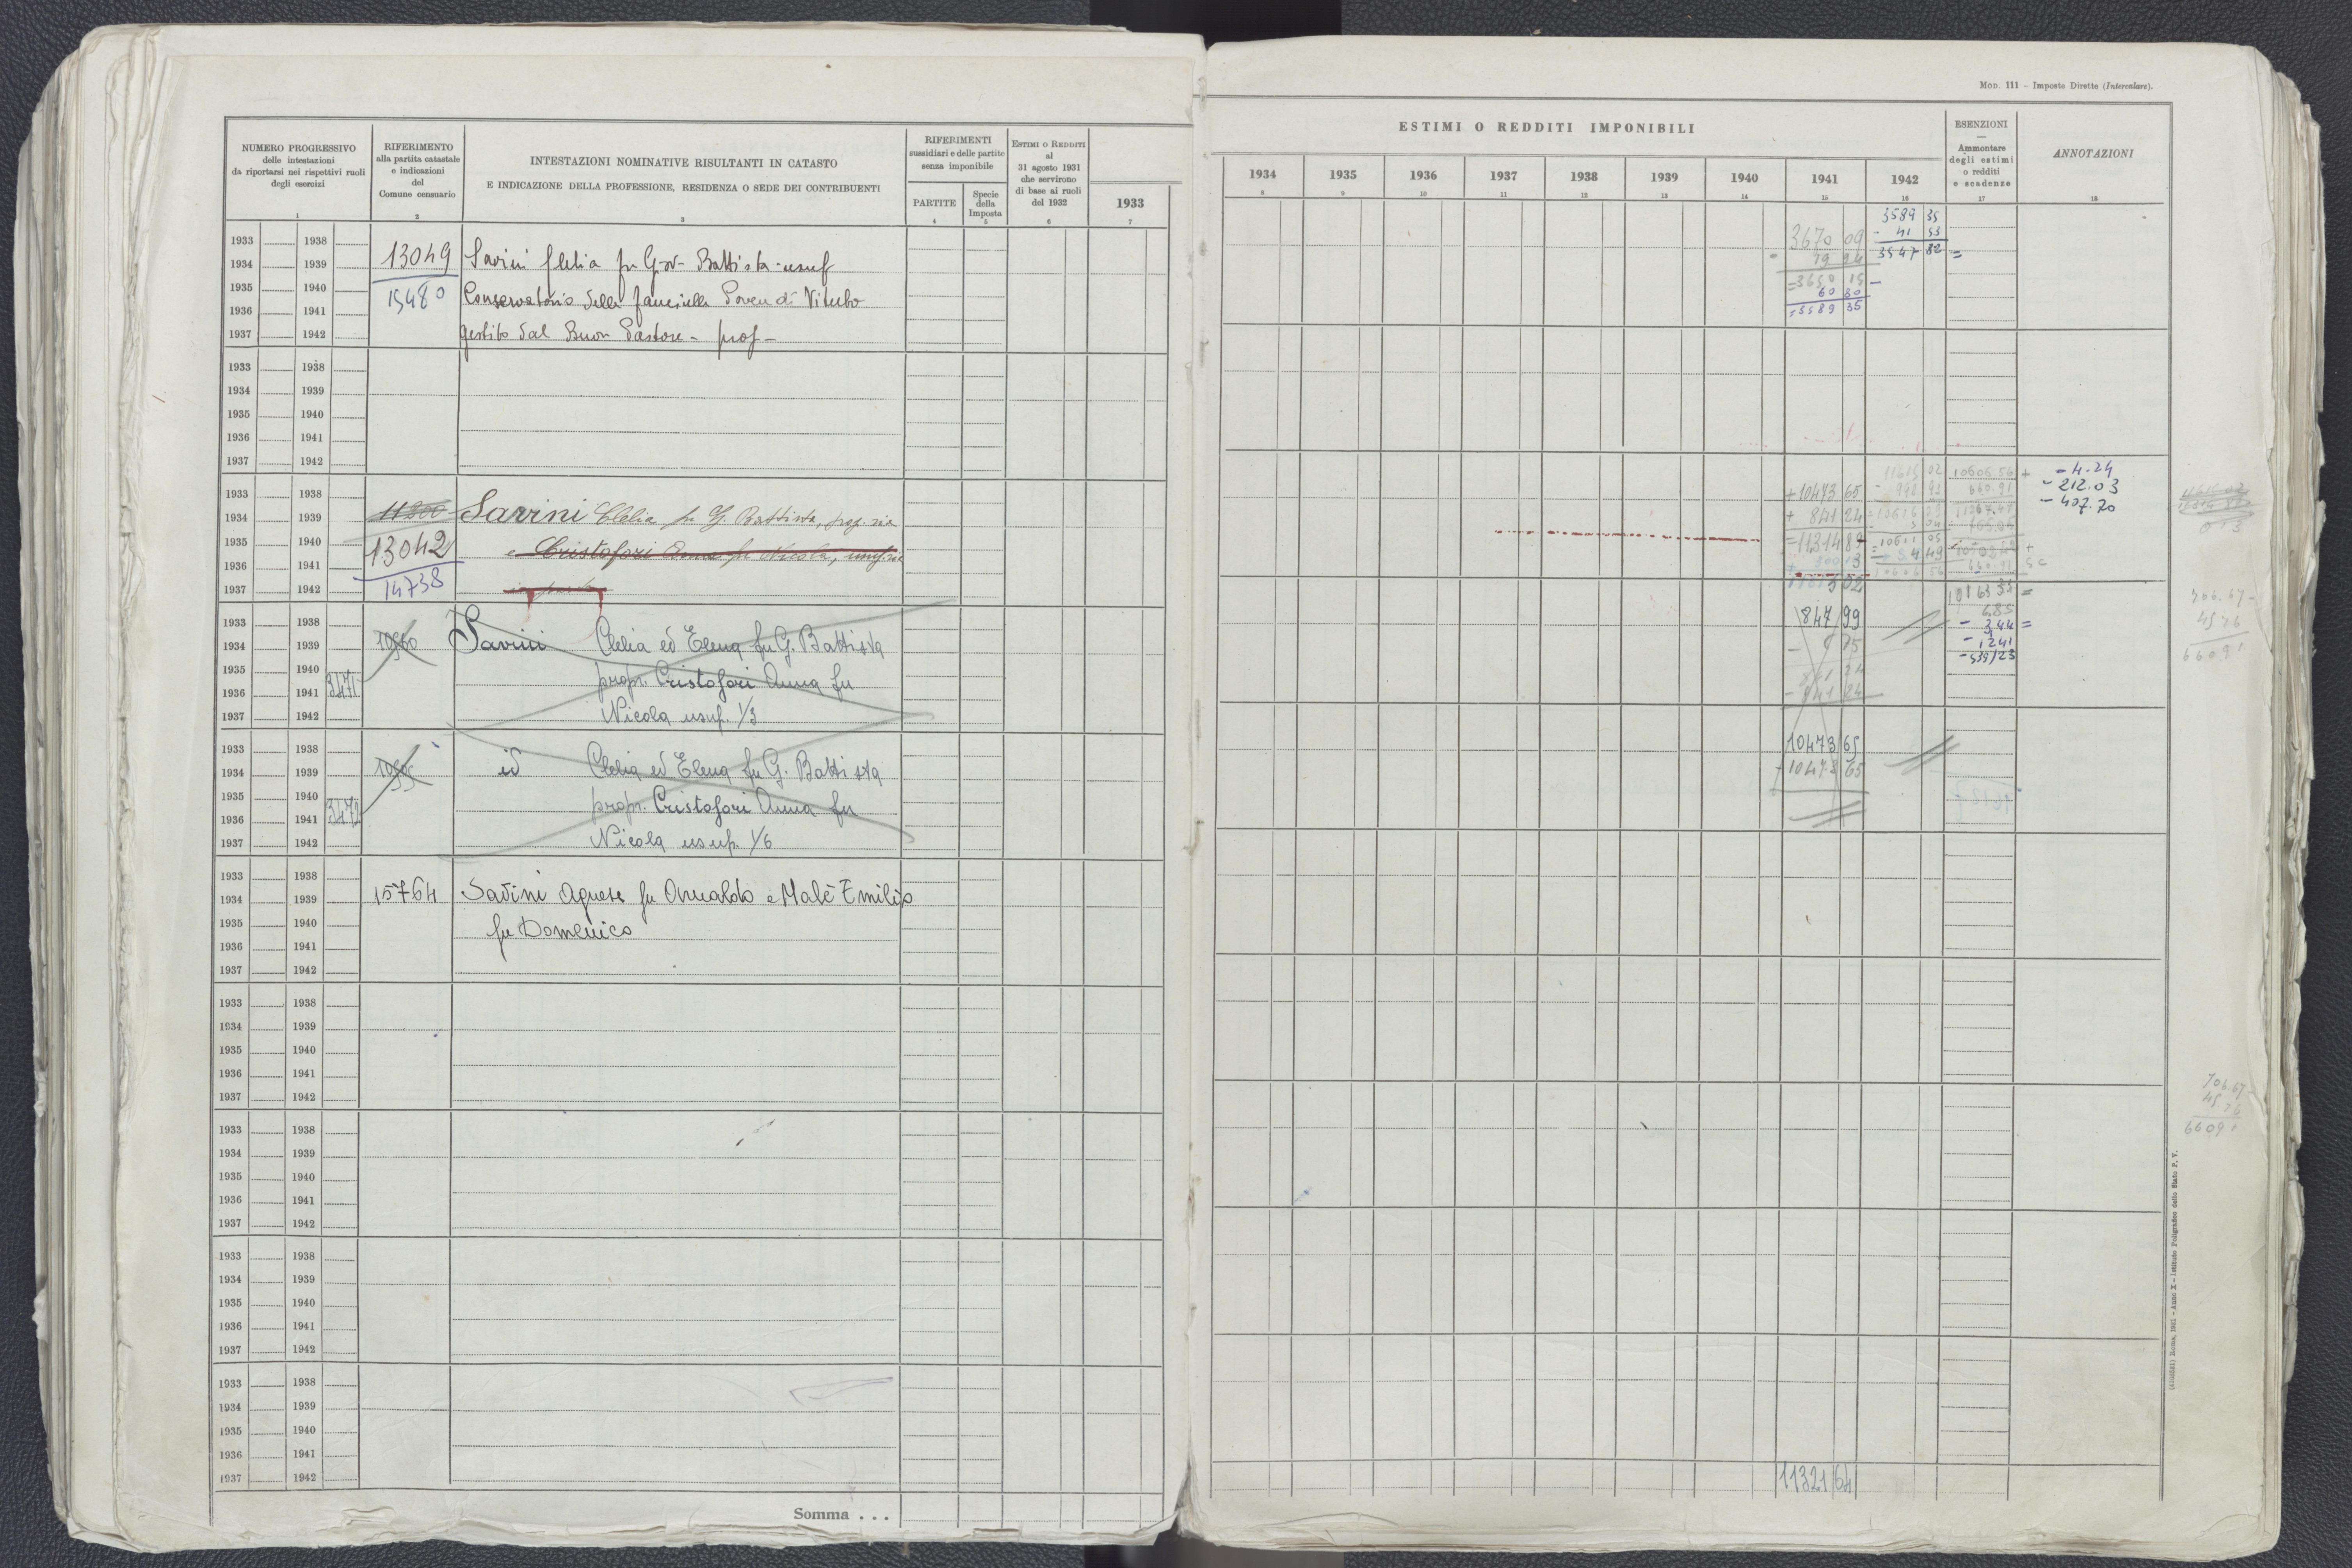 Mod. 111 – Imposte Dirette (Intercalare).
NUMERO PROGRESSIVO
delle intestazioni
da riportarsi nei rispettivi ruoli
degli esercizi
1
RIFERIMENTO
alla partita catastale
e indicazioni
del
Comune censuario
2
INTESTAZIONI NOMINATIVE RISULTANTI IN CATASTO
E INDICAZIONE DELLA PROFESSIONE, RESIDENZA O SEDE DEI CONTRIBUENTI
3
RIFERIMENTI
sussidiari e delle partite
senza imponibile
PARTITE
4
Specie
della
Imposta
5
Estimi o Redditi
al
31 agosto 1931
che servirono
di base ai ruoli
del 1932
6
1933
7
ESTIMI O REDDITI IMPONIBILI
1934 1935 1936 1937 1938 1939 1940 1941 1942
8 9 10 11 12 13 14 15 16
ESENZIONI
—
Ammontare
degli estimi
o redditi
e scadenze
17
ANNOTAZIONI
18
1933 1938
1934 1939 13049 Savini Clelia fu Gio- Battista - usuf
1935 1940 15480 Conservatorio delle fanciulle Povere di Viterbo
1936 1941
1937 1942 gestito dal Buon Pastore - prop -
3670 09
60 30
3589 35
3589 35
- 41 53
3547 82 =
1933 1938
1934 1939
1935 1940
1936 1941
1937 1942
1933 1938
1934 1939 Savini Clelia fu G. Battista, prop.ria
1935 1940 13042 e Cristofori Anna fu Nicola, usuf.ria
1936 1941
1937 1942 14738
+ 10473 65
+ 841 24
= 11314 89
10606 56 +
660.91
- 4.24
- 212.03
- 407.70
1933 1938
1934 1939 Savini Clelia ed Elena fu G. Battista
1935 1940
1936 1941 3471 propr. Cristofori Anna fu
1937 1942 Nicola usuf. 1/3
847 99
841 24
- 841 24
706.67 -
45.76
660 91
1933 1938
1934 1939 id Clelia ed Elena fu G. Battista
1935 1940
1936 1941 3472 propr. Cristofori Anna fu
1937 1942 Nicola usuf. 1/6
10473 65
- 10473 65
1933 1938
1934 1939 15764 Savini Agnese fu Arnaldo e Malè Emilio
1935 1940 fu Domenico
1936 1941
1937 1942
1933 1938
1934 1939
1935 1940
1936 1941
1937 1942
706.67 -
45.76
660 91
1933 1938
1934 1939
1935 1940
1936 1941
1937 1942
1933 1938
1934 1939
1935 1940
1936 1941
1937 1942
1933 1938
1934 1939
1935 1940
1936 1941
1937 1942
11321 64
Somma . . .
Roma, 1931 - Anno X - Istituto Poligrafico dello Stato P. V.